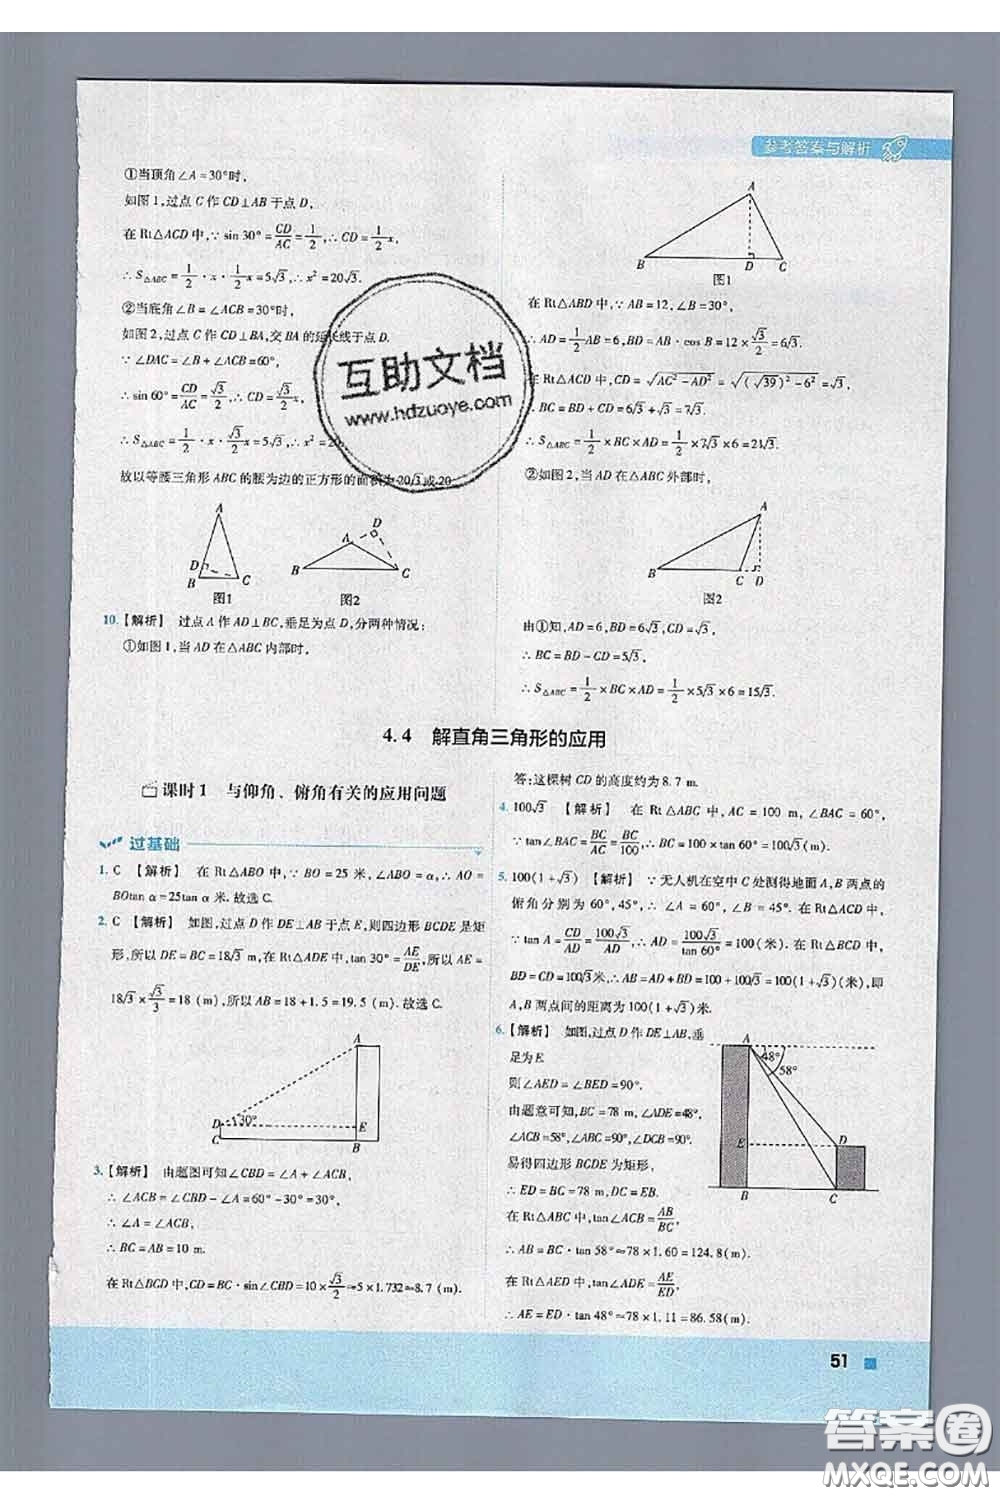 参考答案与解析
①当顶角∠A=30°时,
如图1,过点C作CD⊥AB于点D,
在Rt△ACD中,∵sin 30°=CD/AC=1/2,∴CD=1/2x,
∴S△ABC=1/2·x·1/2x=5√3,∴x²=20√3.
②当底角∠B=∠ACB=30°时,
如图2,过点C作CD⊥BA,交BA的延长线于点D.
∵∠DAC=∠B+∠ACB=60°,
∴S△ABC=1/2·x·√3/2x=5√3,∴x²=20.
故以等腰三角形ABC的腰为边的正方形的面积为20√3或20.
A
D
B
C
图1
D
A
B
C
图2
10.【解析】 过点A作AD⊥BC,垂足为点D,分两种情况:
①如图1,当AD在△ABC内部时,
A
B
D
C
图1
在Rt△ABD中,∵AB=12,∠B=30°,
∴AD=1/2AB=6,BD=AB·cos B=12×√3/2=6√3.
在Rt△ACD中,CD=√(AC²-AD²)=√((√39)²-6²)=√3,
∴BC=BD+CD=6√3+√3=7√3,
∴S△ABC=1/2×BC×AD=1/2×7√3×6=21√3.
②如图2,当AD在△ABC外部时,
A
B
C
D
图2
由①知,AD=6,BD=6√3,CD=√3,
∴BC=BD-CD=5√3,
∴S△ABC=1/2×BC×AD=1/2×5√3×6=15√3.
4.4 解直角三角形的应用
课时1 与仰角、俯角有关的应用问题
过基础
1. C 【解析】 在Rt△ABO中,∵BO=25米,∠ABO=α,∴AO=
BOtan α=25tan α米.故选C.
2. C 【解析】 如图,过点D作DE⊥AB于点E,则四边形BCDE是矩
形,所以DE=BC=18√3 m,在Rt△ADE中,tan 30°=AE/DE,所以AE=
18√3×√3/3=18(m),所以AB=18+1.5=19.5(m).故选C.
A
D
30°
E
C
B
3.【解析】 由题图可知∠CBD=∠A+∠ACB,
∴∠ACB=∠CBD-∠A=60°-30°=30°,
∴∠A=∠ACB,
∴BC=AB=10 m.
在Rt△BCD中,CD=BC·sin∠CBD=10×√3/2≈5×1.732≈8.7(m).
答:这棵树CD的高度约为8.7 m.
4. 100√3 【解析】 在Rt△ABC中,AC=100 m,∠BAC=60°,
∵tan∠BAC=BC/AC=BC/100,∴BC=100×tan 60°=100√3(m).
5. 100(1+√3) 【解析】 ∵无人机在空中C处测得地面A,B两点的
俯角分别为60°,45°,∴∠A=60°,∠B=45°.在Rt△ACD中,
∵tan A=CD/AD=100√3/AD,∴AD=100√3/tan 60°=100(米).在Rt△BCD中,
BD=CD=100√3米,∴AB=AD+BD=100+100√3=100(1+√3)(米),即
A,B两点间的距离为100(1+√3)米.
6.【解析】 如图,过点D作DE⊥AB,垂
足为E.
则∠AED=∠BED=90°.
由题意可知,BC=78 m,∠ADE=48°,
∠ACB=58°,∠ABC=90°,∠DCB=90°.
易得四边形BCDE为矩形,
∴ED=BC=78 m,DC=EB.
在Rt△ABC中,tan∠ACB=AB/BC,
∴AB=BC·tan 58°≈78×1.60=124.8(m).
在Rt△AED中,tan∠ADE=AE/ED,
∴AE=ED·tan 48°≈78×1.11=86.58(m).
A
48°
58°
E
D
B
C
51
互助文档
www.hdzuoye.com
答案圈
MXQE.COM